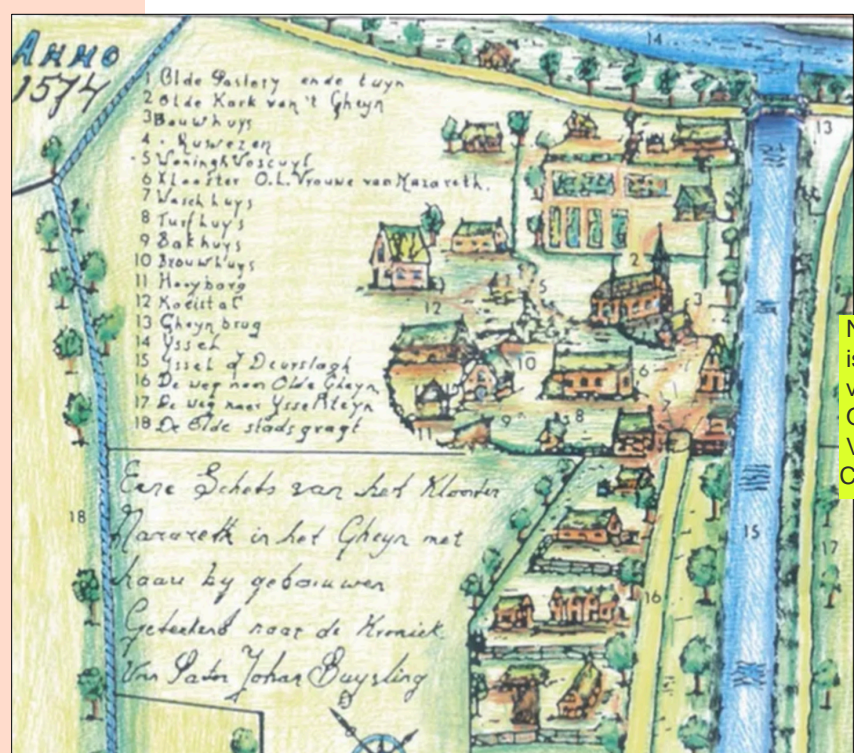 ANNO
1574
1 Olde Pastory ende tuyn
2 Olde Kerk van 't Gheyn
3 Bouwhuys
4
5 Woningh
6 Klooster O.L. Vrouwe van Nazareth.
7 Waschhuys
8 Turfhuys
9 Bakhuys
10 Brouwhuys
11 Hooyberg
12 Koeistal
13 Gheynbrug
14 Yssel
15 Yssel of Deurslagh
16 De weg naar Olde Gheyn
17 De weg naar Ysselsteyn
18 De Olde stadsgragt
Eene Schets van het Klooster
Nazareth in het Gheyn met
haare by gebouwen
Geteekend naar de Kroniek
Van Pater Johan Buysling
14
13
2
5
3
12
10
6
9
8
11
18
15
17
16